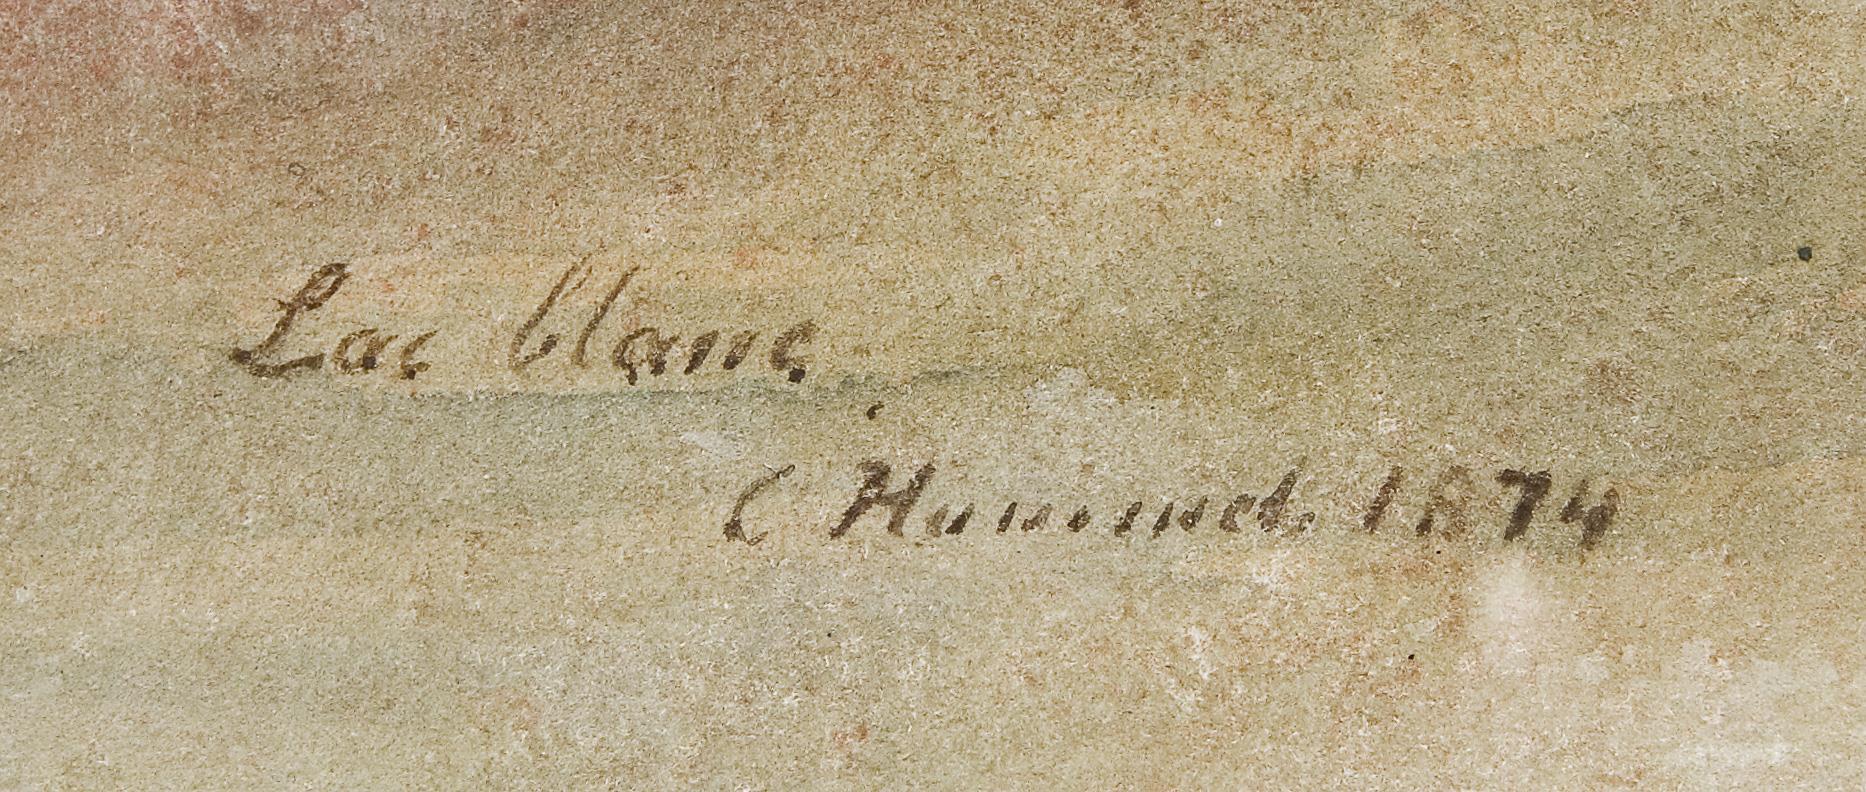 Lac blanc
C Hummel. 1874